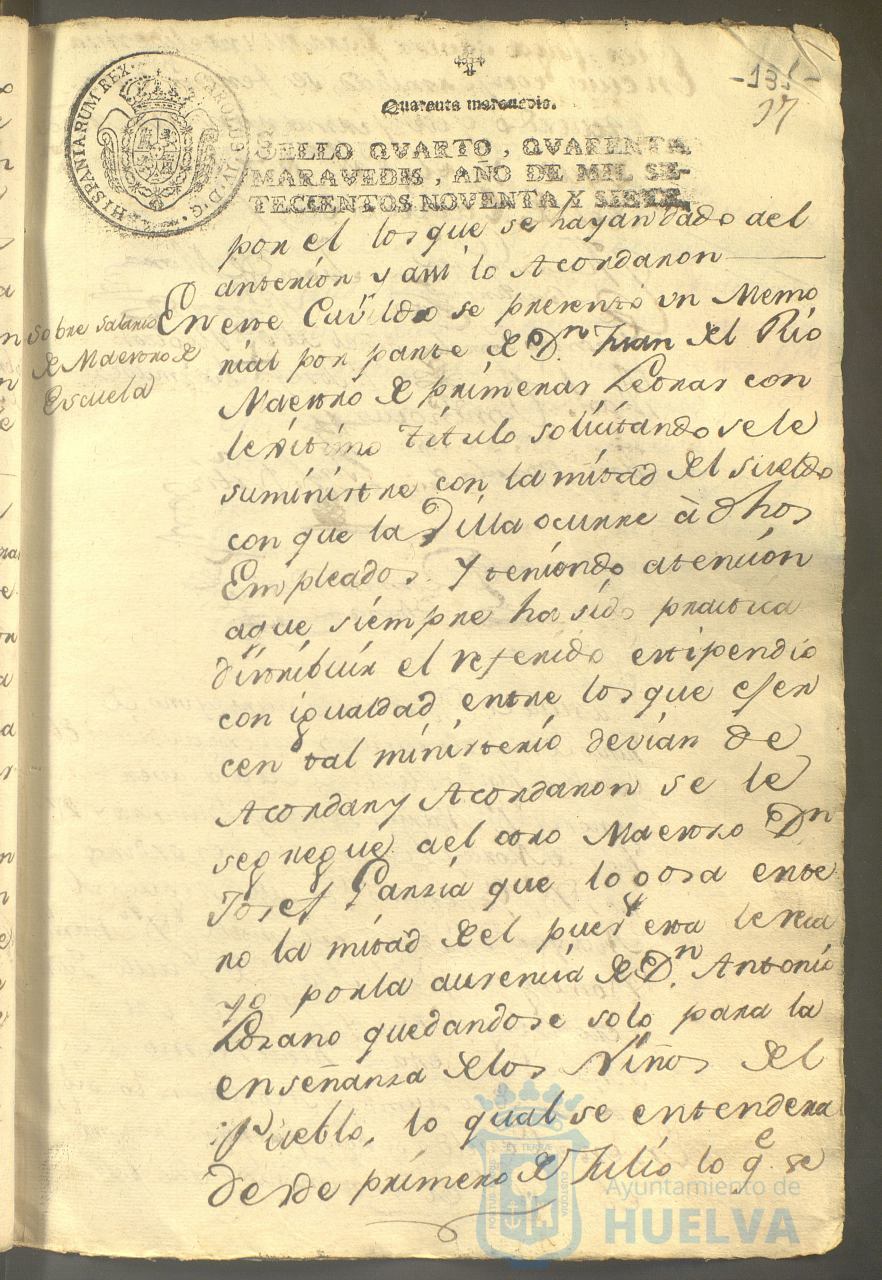 -181-
17
Quarenta marauedis.
HISPANIARUM REX CAROLUS IV D G
SELLO QVARTO, QVARENTA
MARAVEDIS, AÑO DE MIL SE-
TECIENTOS NOVENTA Y SIETE
por el los que se hayan dado del
anterior y assi lo Acordaron
Sobre Salario
de Maestro de
Escuela
En este Cavildo se presento un Memo
rial por parte de Dn. Juan del Rio
Maestro de primeras Letras con
lexitimo titulo solicitando se le
suministre con la mitad del sueldo
con que la Villa ocurre à dhos
Empleados. Y teniendo atencion
aque siempre ha sido practica
distribuir el referido estipendio
con igualdad entre los que ejer
cen tal ministerio devian de
Acordar y Acordaron se le
segregue del otro Maestro Dn
Josef Garzia que lo goza ente
ro la mitad del pues esta
por la ausencia de Dn. Antonio
Lozano quedandose solo para la
enseñanza de los Niños del
Pueblo, lo qual se entendera
desde primero de Julio lo qe. se
Ayuntamiento de
HUELVA